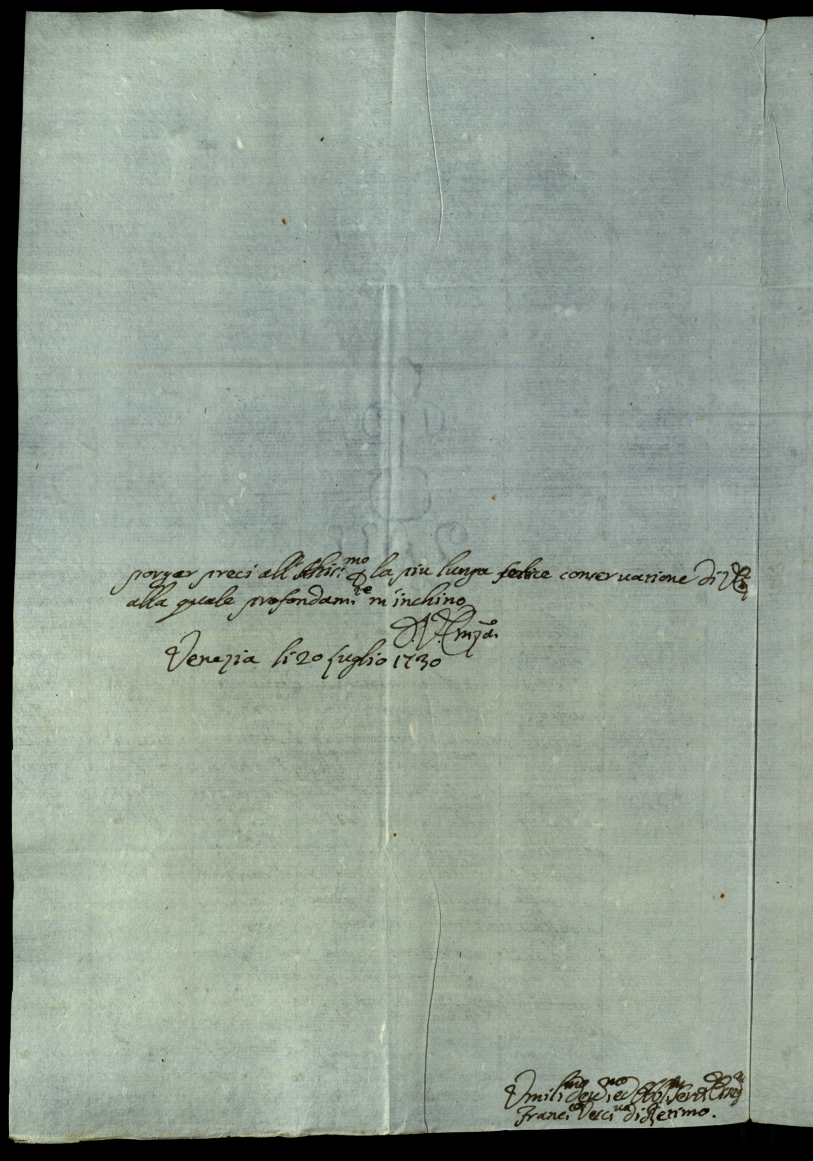 porger preci all' Altiss:mo p la piu lunga felice conservazione di V. E.
alla quale profondam:te m'inchino
D. V. Em:za
Venezia li 20 luglio 1730
Umiliss:mo Dev:mo ed Obl:mo Serv:
Franc:co Vesc:vo di